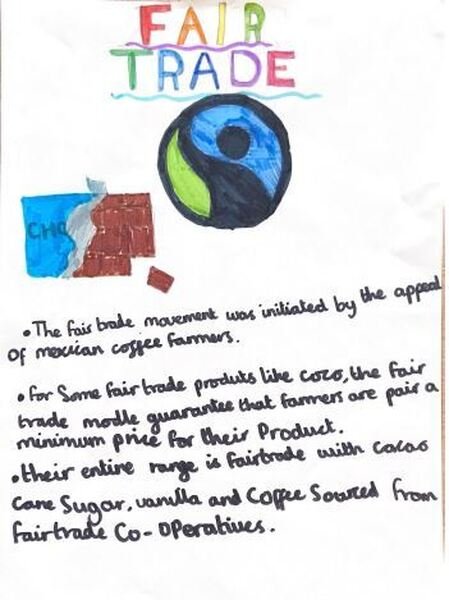 FAIR
TRADE
CHO
•The fair trade movement was initiated by the appeal
of mexican coffee farmers.
•for Some fair trade produts like coco, the fair
trade modle guarantee that farmers are pair a
minimum price for their Product.
•their entire range is fairtrade with cacao
cane Sugar, vanilla and Coffee Sourced from
fairtrade Co-operatives.